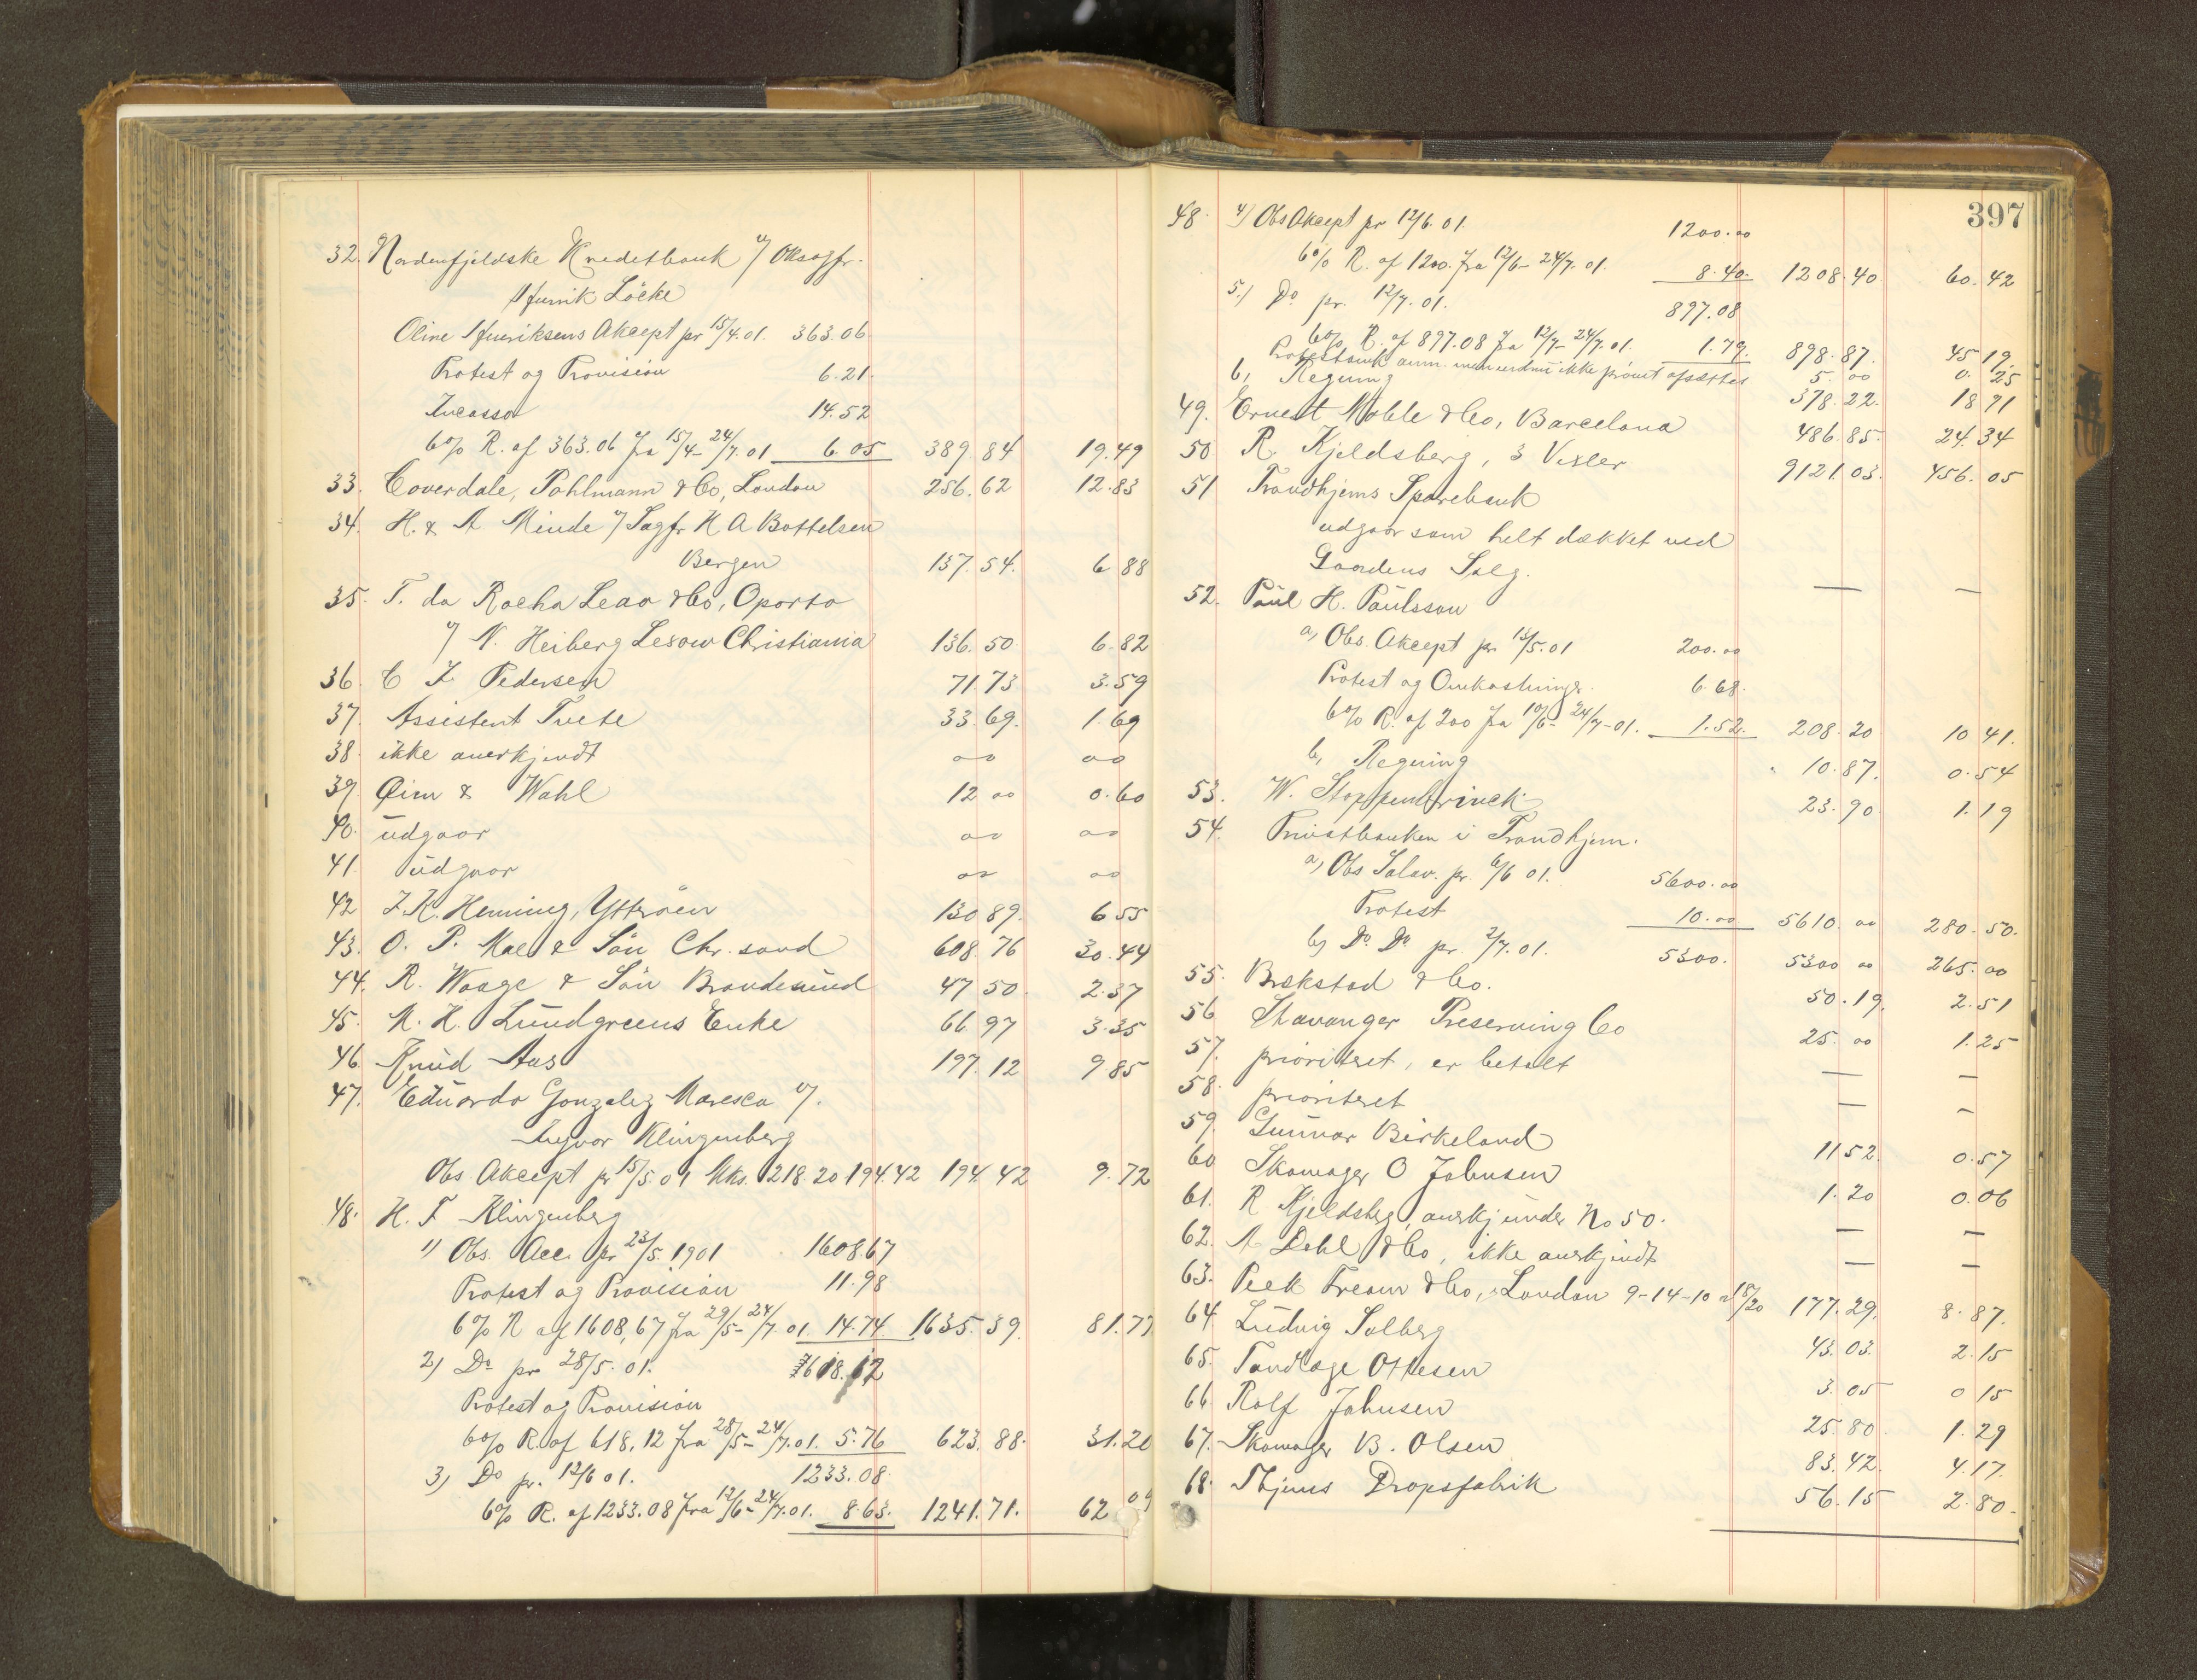 32. Nordenfjeldske Kreditbank v/ Oksagfr.
Henrik Löcke
Oline Henriksens Akcept pr 15/4.01. 363.06
Protest og Provision 6.21.
Incasso 14.52
6% R. af 363.06 fra 15/4-24/7.01 6.05 389.84 19.49
33. Coverdale, Pohlmann & Co, London 256.62 12.83
34. H. & A Minde v/ Sagfr. H A Bottelsen
Bergen 137.54. 6 88
35. T. da Rocha Leao & Co, Oporto
v/ N. Heiberg Lexow Christiania 136.50 6.82
36. C Z. Pedersen 71.73 3.59
37. Assistent Tvete 33.69. 1.69
38. ikke anerkjendt oo oo
39. Oim & Wahl 12 oo 0.60
40. udgaar oo oo
41. udgaar oo oo
42 Z. K. Henning, Ytteröen 130 89. 6 55
43. O. P. Moe & Sön Chr. sand 608.76 30.44
44. R. Waage & Sön Brandesund 47 50 2.37
45. M. H. Lundgreens Enke 66.97 3.35
46. Knud Aas 197.12 9.85
47. Eduardo Gonzalez Maresca v/.
Ingvar Klingenberg
Obs. Akcept pr 15/5.01 Mks. 218.20 194.42 194.42 9.72
48. H. F Klingenberg
1) Obs. Acc. pr 23/5.1901 1608.67
Protest og Provision 11.98
6% R af 1608,67 fra 29/5-24/7.01. 14.74 1635.39. 81.77
2) Do pr 28/5.01. 618.12
Protest og Provision
6% R. af 618,12 fra 28/5-24/7.01. 5.76 623.88. 31.20
3) Do pr. 12/6 01. 1233.08.
6% R. af 1233.08 fra 12/6-24/7.01. 8.63. 1241.71. 62 09
397
48. 4) Obs Akcept pr 12/6.01. 1200.oo
6% R. af 1200. fra 12/6-24/7.01. 8.40. 1208.40 60.42
5.) Do pr. 12/7.01. 897.08
6% R. af 897.08 fra 12/7-24/7.01. 1.79. 898.87. 45 19.
5.oo 0.25
6, Regning 378.22. 18 91
49. Ernest Noble & Co, Barcelona 486.85. 24.34
50 R. Kjeldsberg, 3 Vexler 9121.03. 456.05
51 Trondhjems Sparebank
udgaar som helt dækket ved
Gaardens Salg. — —
52. Paul H. Paulsson
a, Obs. Akcept pr. 15/5.01 200.oo
Protest og Omkostninger. 6.68.
6% R. af 200 fra 10/6-24/7-01. 1.52. 208.20 10 41.
b, Regning 10.87. 0.54
53. W. Stoppenbrinck 23.90 1.19
54. Privatbanken i Trondhjem.
a, Obs Solav. pr. 6/6 01. 5600.oo
Protest 10.oo 5610.oo 280.50.
b) Do. Do pr. 2/7.01. 5300. 5300 oo 265.oo
55. Brækstad & Co. 50.19. 2.51
56 Stavanger Preserving Co 25.oo 1.25
57. prioriteret, er betalt — —
58. prioriteret — —
59. Gunnar Birkeland 11 52. 0.57
60 Skomager O Johnsen 1.20 0.06
61. R Kjeldsberg, anerkj under No 50. — —
62. A Dahl & Co, ikke anerkjendt — —
63. Peek Frean & Co, London 9-14-10 a 18/20 177.29. 8.87.
64. Ludvig Solberg 43.03. 2.15
65. Tandlæge Ottesen 3.05 0 15
66 Rolf Johnsen 25.80 1.29
67. Skomager B. Olsen 83.42. 4.17.
68. Thjems Dropsfabrik 56.15 2.80.